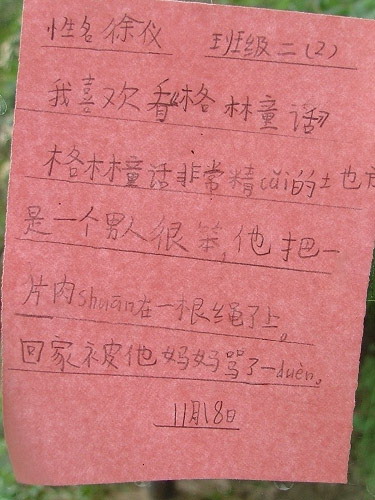 性名徐仪 班级二(2)
我喜欢看“格林童话”
格林童话非常精cǎi的
是一个男人很笨,他把一
片肉shuān在一根绳子上。
回家被他妈妈骂了一duèn。
11月18日